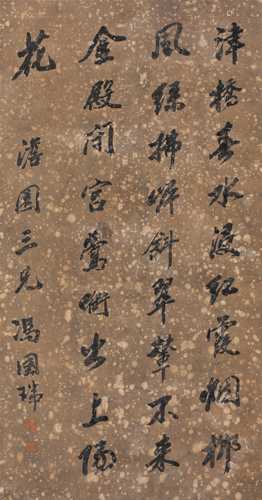 津橋春水浸紅霞烟柳
風絲拂岸斜翠輦不来
金殿閉宮鶯銜出上陽
花
澄园三兄 馮国瑞